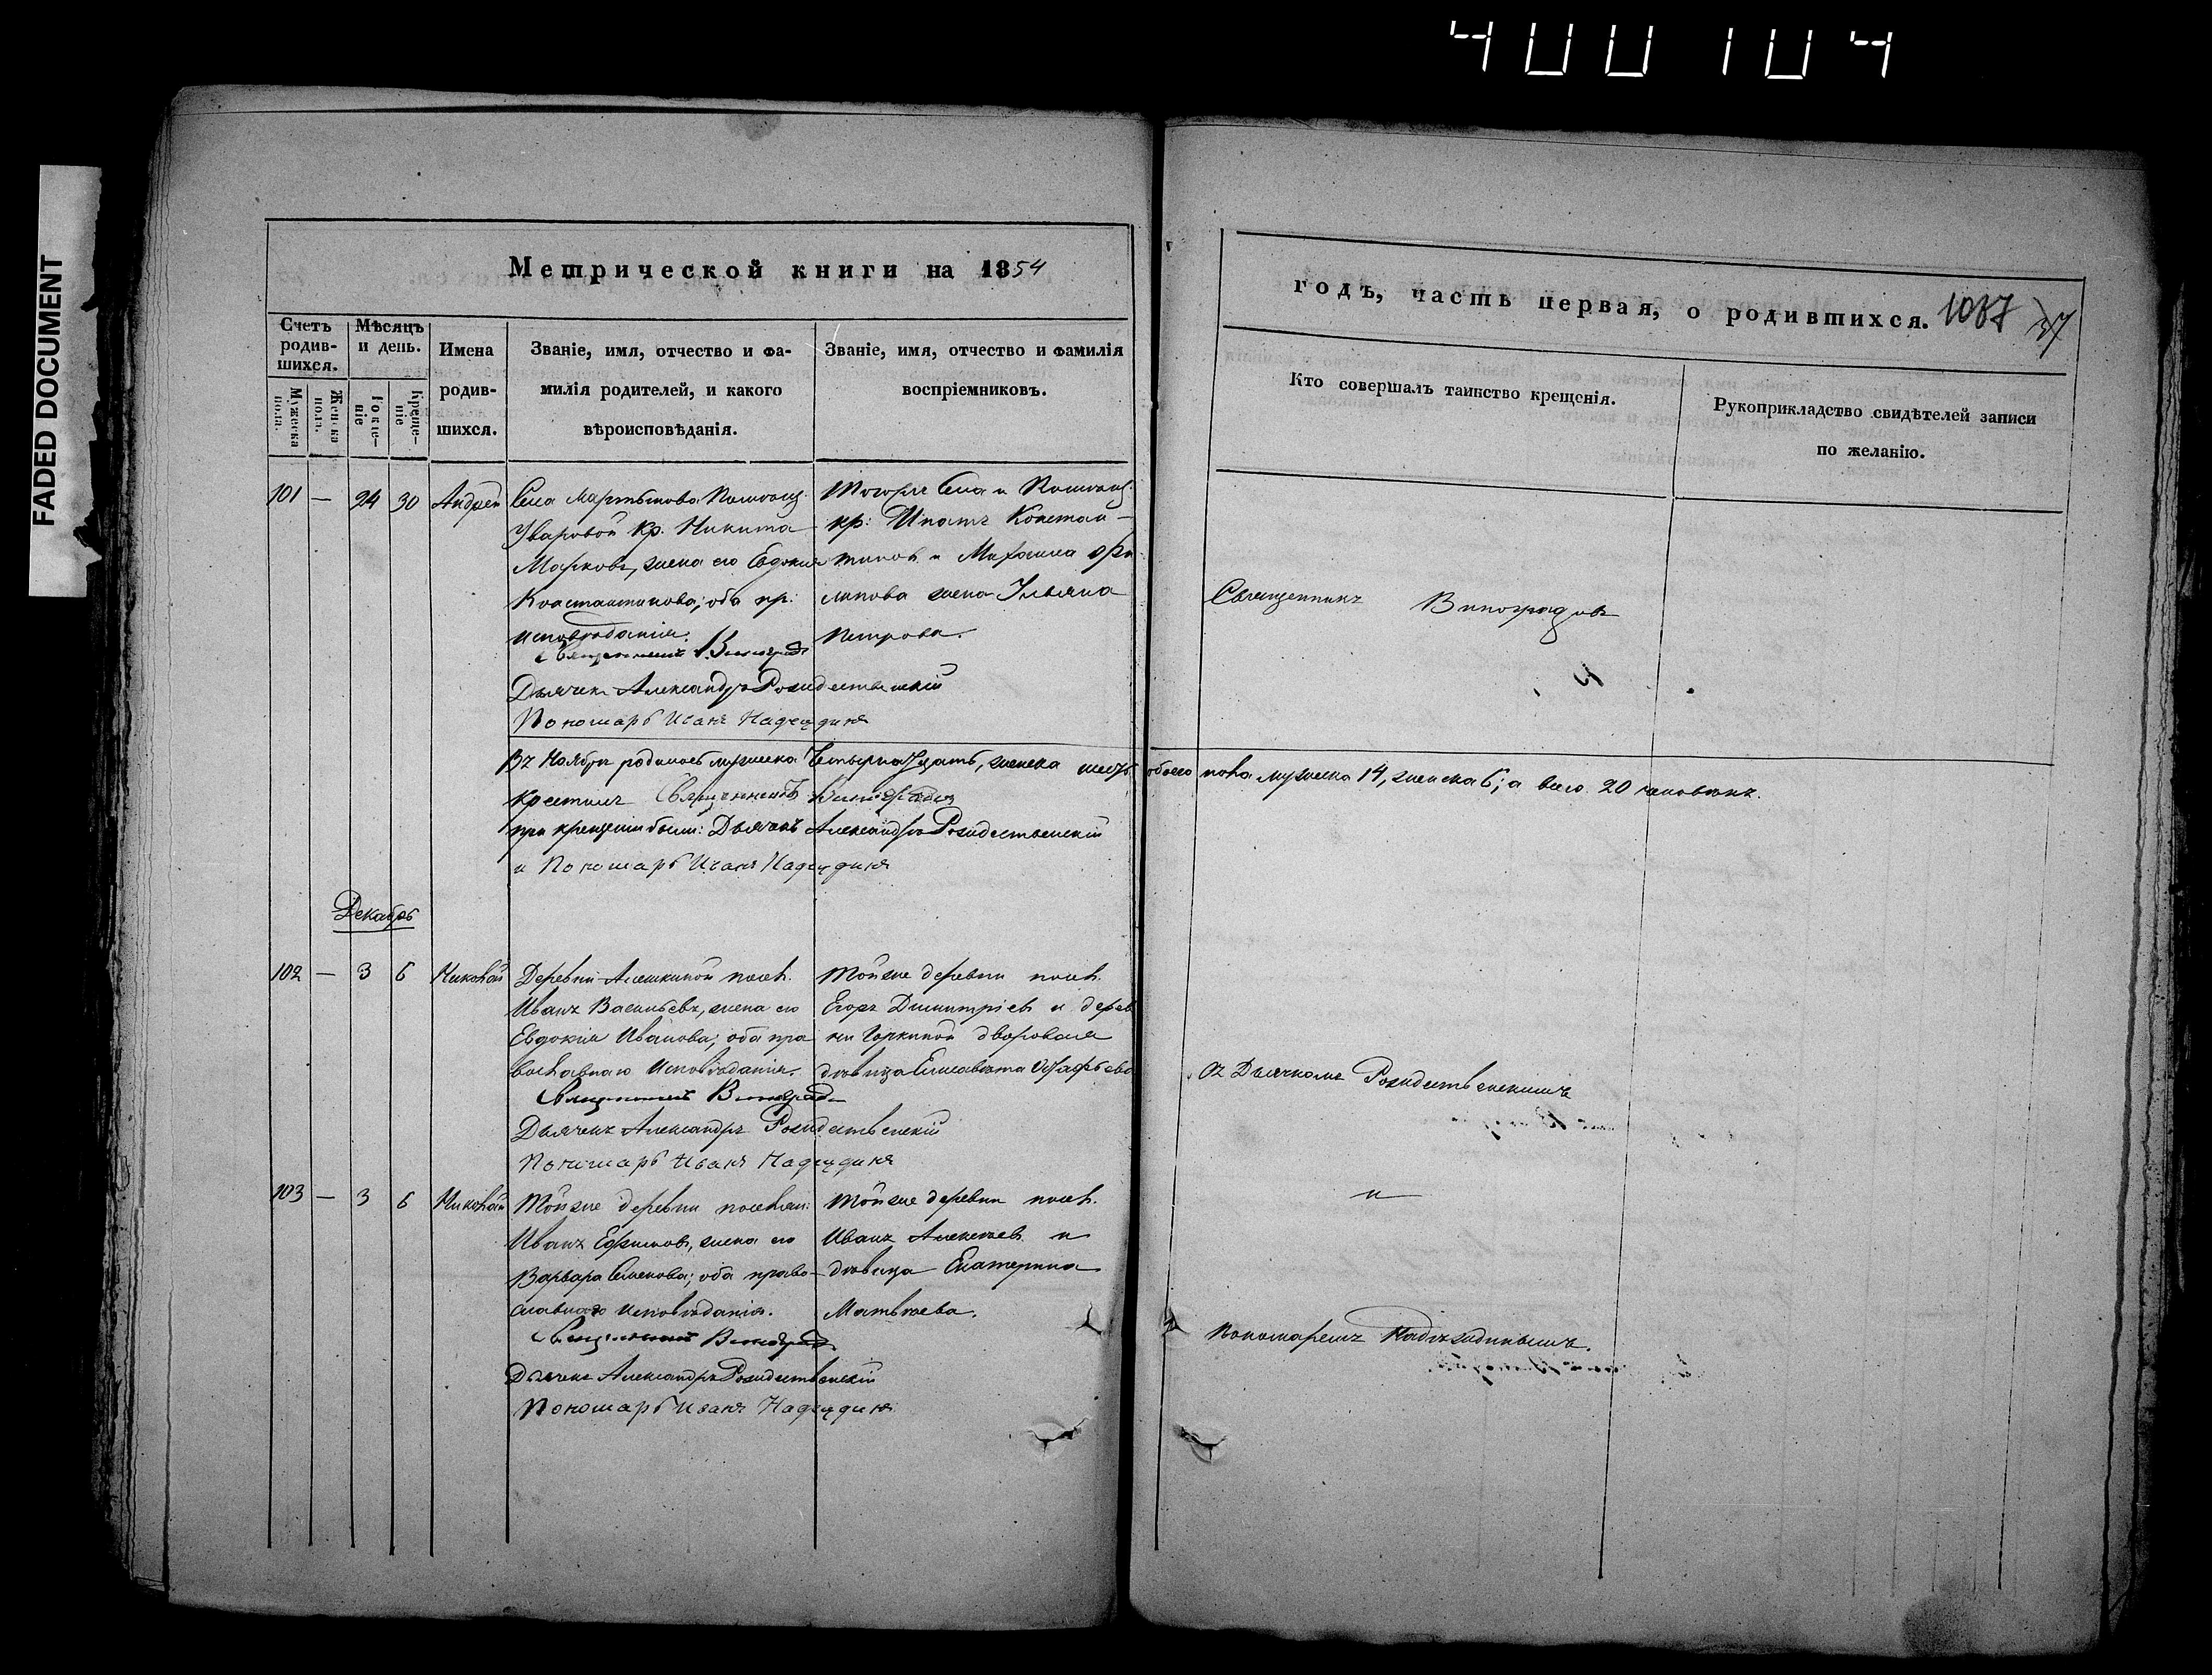 400104
FADED DOCUMENT
Метрической книги на 1854
годъ, часть первая, о родившихся. 1087 37
Счетъ родив-шихся.
Мужеска пола.
Женска пола.
Мѣсяцъ и день.
Рожде-ніе
Креще-ніе
Имена родив-шихся.
Званіе, имя, отчество и фа-
милія родителей, и какого
вѣроисповѣданія.
Званіе, имя, отчество и фамилія
воспріемниковъ.
Кто совершалъ таинство крещенія.
Рукоприкладство свидѣтелей записи
по желанію.
101 — 24 30 Андрей
Села Мартынова Помѣщ.
Уваровой Кр. Никита
Марковъ, жена его Евдокия
Константинова; оба пр.
исповѣданія.
Священникъ Виноградовъ
Дьячекъ Александръ Рождественскій
Пономарь Иванъ Надеждинъ
Тогоже Села и Помѣщ.
кр: Ипатъ Констан-
тиновъ и Михаила Фи
липова жена Ульяна
Петрова.
Священникъ Виноградовъ
Въ Ноябрѣ родилось мужеска Четырнадцать, женска шесть обоего пола мужеска 14, женска 6; а всего 20 человѣкъ.
Крестилъ Священникъ Виноградовъ
при крещеніи были: Дьячекъ Александръ Рождественскій
и Пономарь Иванъ Надеждинъ
Декабрь
102 — 3 6 Николай
Деревни Алешкиной посел.
Иванъ Васильевъ, жена его
Евдокія Иванова; оба пра
вославнаго исповѣданія.
Священникъ Виноградовъ
Дьячекъ Александръ Рождественскій
Пономарь Иванъ Надеждинъ
Тойже деревни посел.
Егоръ Димитріевъ и дерев
ни Горкиной дворовая
дѣвица Елисавета
Съ Дьячкомъ Рождественскимъ
103 — 3 6 Николай
Тойже деревни поселян:
Иванъ Ефимовъ, жена его
Варвара Семенова; оба право-
славнаго исповѣданія.
Священникъ Виноградовъ
Дьячекъ Александръ Рождественскій
Пономарь Иванъ Надеждинъ
Тойже деревни посел.
Иванъ Алексѣевъ и
дѣвица Екатерина
Матвѣева.
и
Пономаремъ Надеждинымъ.